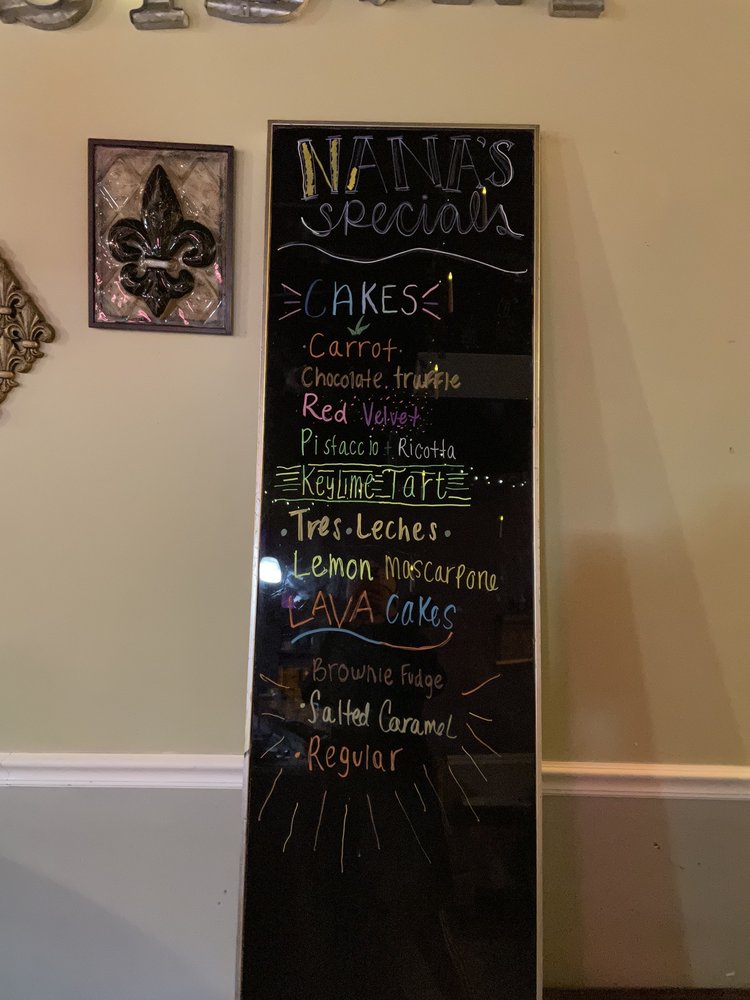 NANA'S
specials
CAKES
·Carrot·
Chocolate truffle
Red Velvet
Pistaccio + Ricotta
KeyLime Tart
·Tres·Leches·
Lemon mascarpone
LAVA Cakes
·Brownie Fudge
·Salted Caramel
·Regular